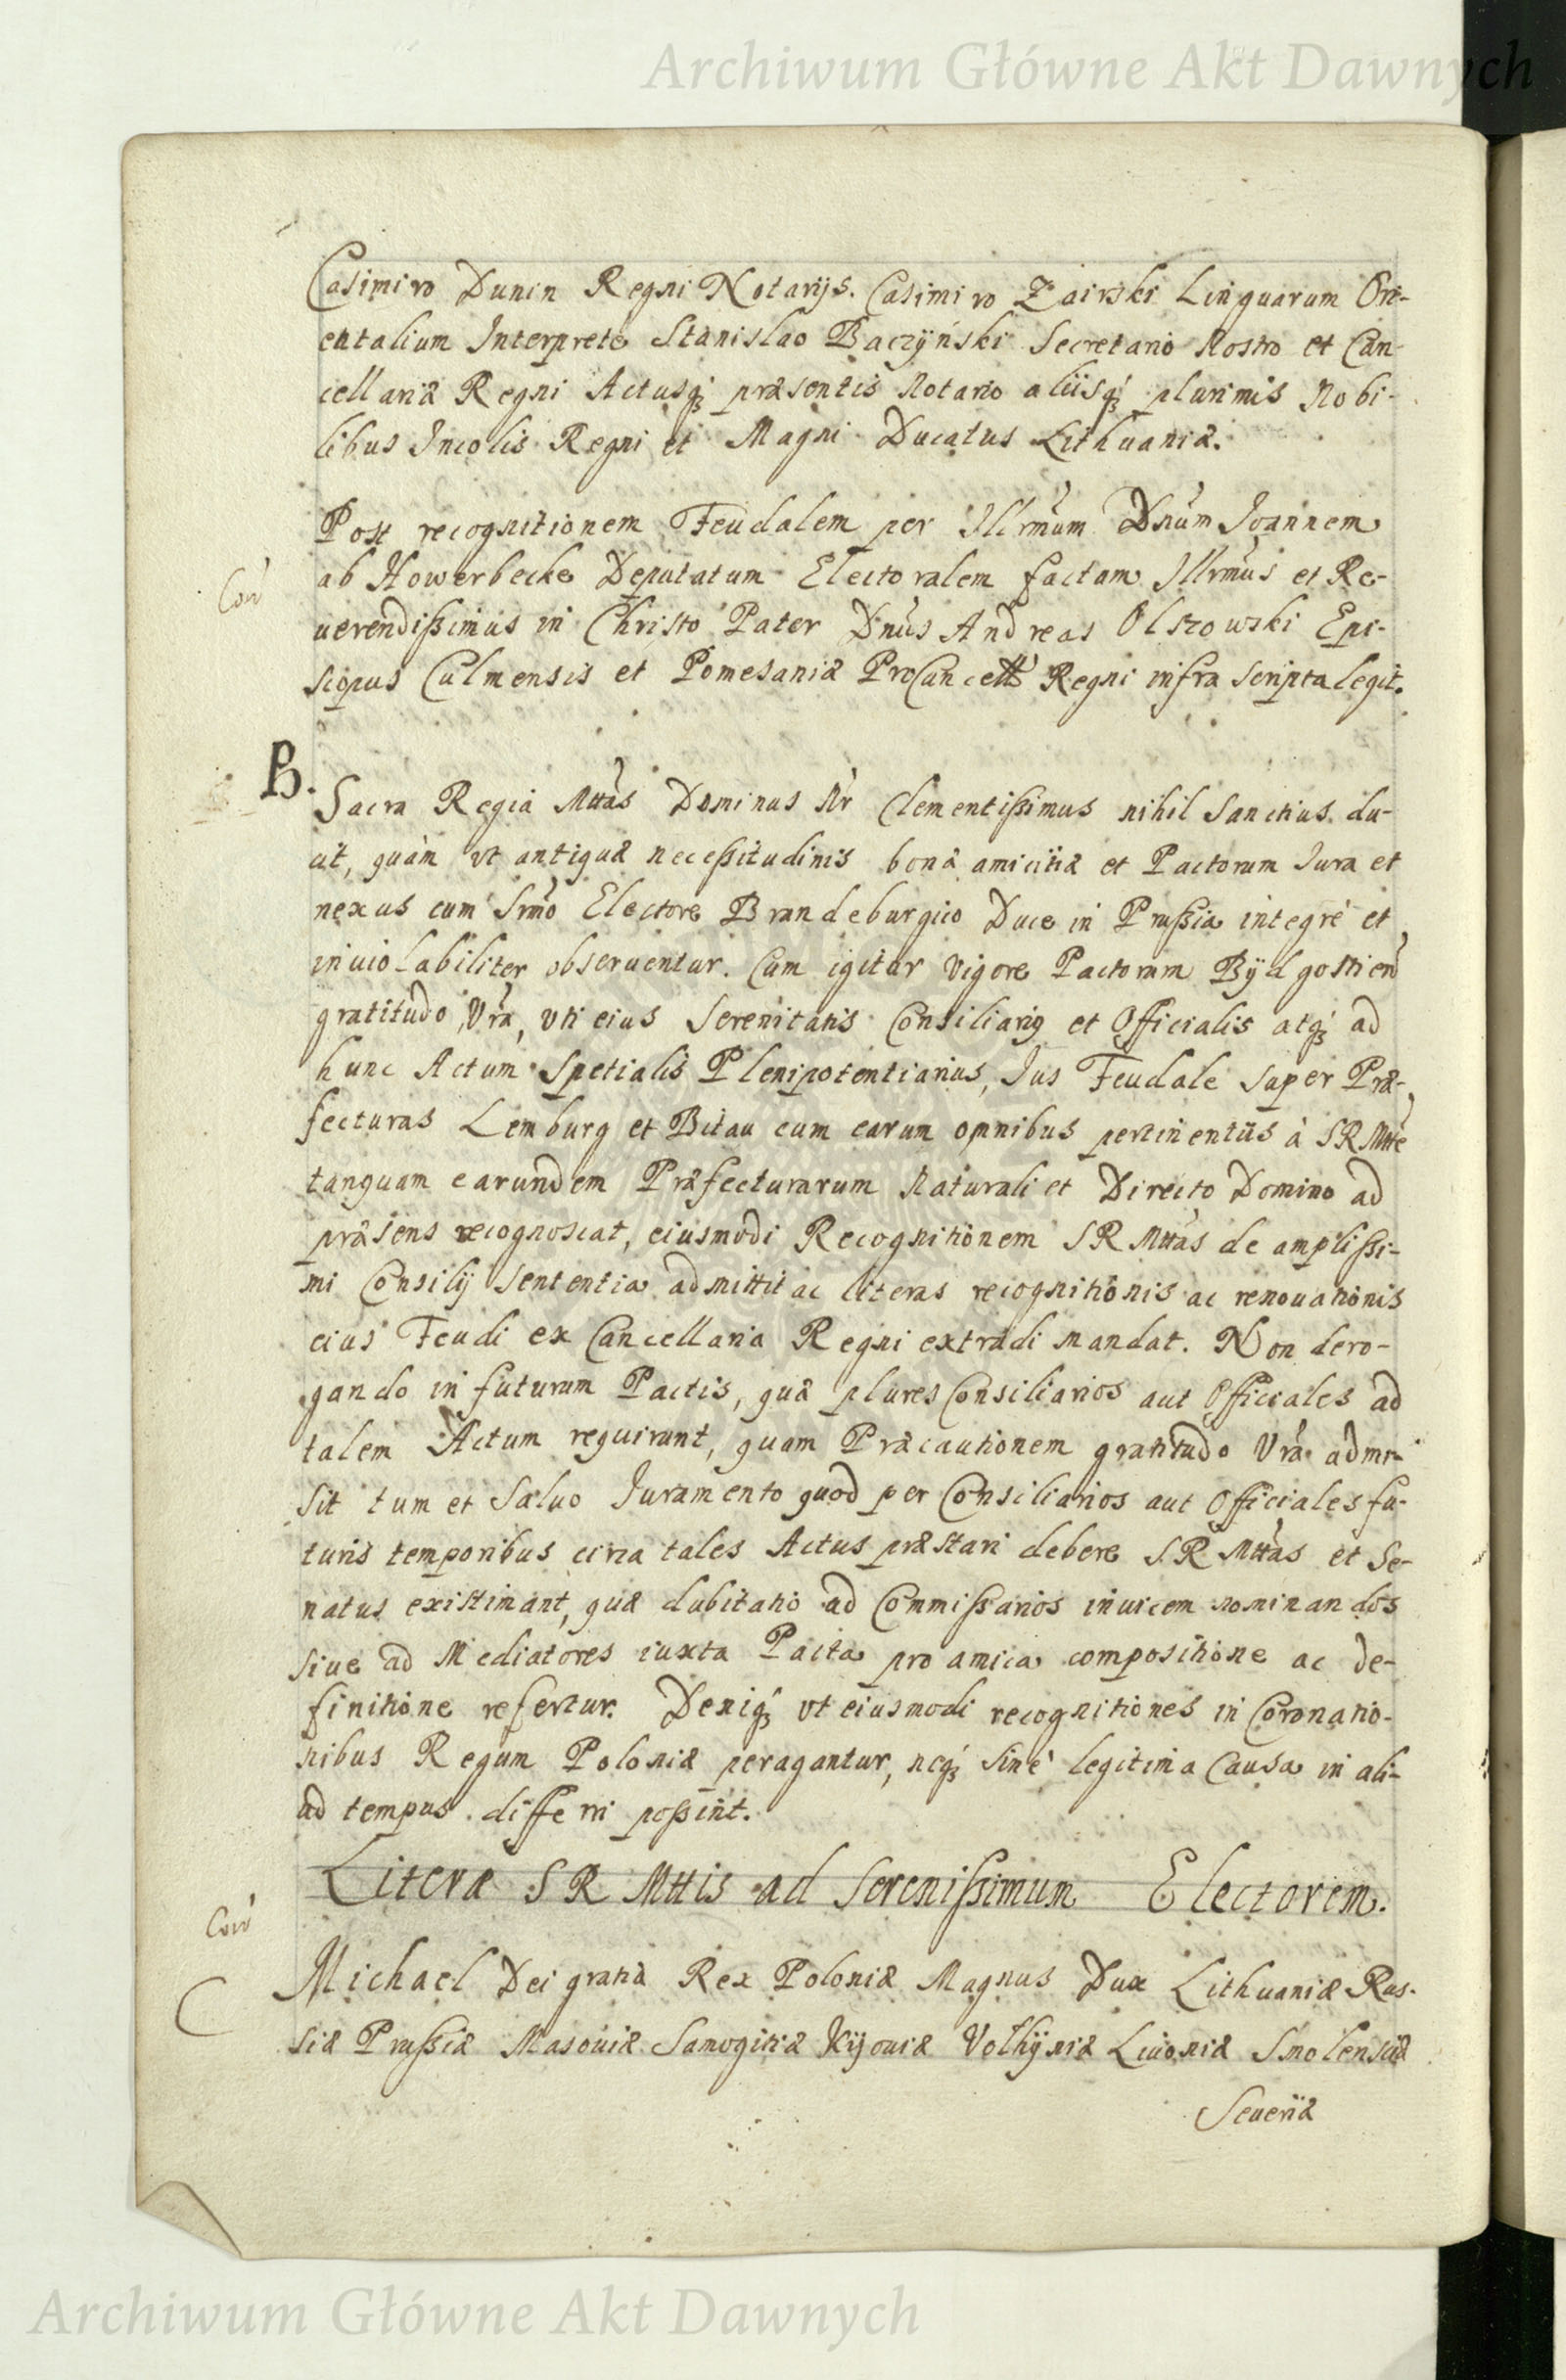 Archiwum Główne Akt Dawnych
Casimiro Dunin Regni Notarijs. Casimiro Zairski Linguarum Ori-
entalium Interprete Stanislao Baczÿński Secretario Nostro et Can-
cellariæ Regni Actusq; præsentis Notario aliisq; plurimis Nobi-
libus Incolis Regni et Magni Ducatus Lithuaniæ.
Post recognitionem Feudalem per Illrmum Dnum Joannem
ab Howerbecke Deputatum Electoralem factam Illrmus et Re-
uerendissimus in Christo Pater Dnus Andreas Olszowski Epi-
scopus Culmensis et Pomesaniæ ProCancell Regni infra scripta legit.
B.
Sacra Regia Mttas Dominus Nr Clementissimus nihil Sanctius du-
cit, quàm vt antiquæ necessitudinis bonæ amicitiæ et Pactorum Jura et
nexus cum Srmo Electore Brandeburgico Duce in Prussia integrè et
inuiolabiliter obseruentur. Cum igitur vigore Pactorum Bÿdgostien
gratitudo Vra, vti eius Serenitatis Consiliarig et Officialis atq; ad
hunc Actum Spetialis Plenipotentiarius, Jus Feudale super Præ-
fecturas Lemburg et Bitau cum earum omnibus pertinentiis à SRMtte
tanquam earundem Præfecturarum Naturali et Directo Domino ad
præsens recognoscat, eiusmodi Recognitionem SR Mttas de amplissi-
mi Consilij sententia admittit ac literas recognitionis ac renouationis
eius Feudi ex Cancellaria Regni extradi mandat. Non dero-
gando in futurum Pactis, quæ plures Consiliarios aut Officiales ad
talem Actum requirunt, quam Præcautionem gratitudo Vra admi-
sit tum et Saluo Juramento quod per Consiliarios aut Officiales fu-
turis temporibus circa tales Actus præstari debere S.R Mttas et Se-
natus existimant, quæ dubitatio ad Commissarios inuicem nominandos
siue ad Mediatores iuxta Pacta pro amica compositione ac de-
finitione refertur. Deniq; vt eiusmodi recognitiones in Coronatio-
nibus Regum Poloniæ peragantur, neq; sinè legitima Causa in ali-
ud tempus differri possint.
Literæ SR Mttis ad Serenissimum Electorem.
C
Michael Dei gratia Rex Poloniæ Magnus Dux Lithuaniæ Rus-
siæ Prussiæ Masouiæ Samogitiæ Kijouiæ Volhÿniæ Liuoniæ Smolensciæ
Seueriæ
Archiwum Główne Akt Dawnych